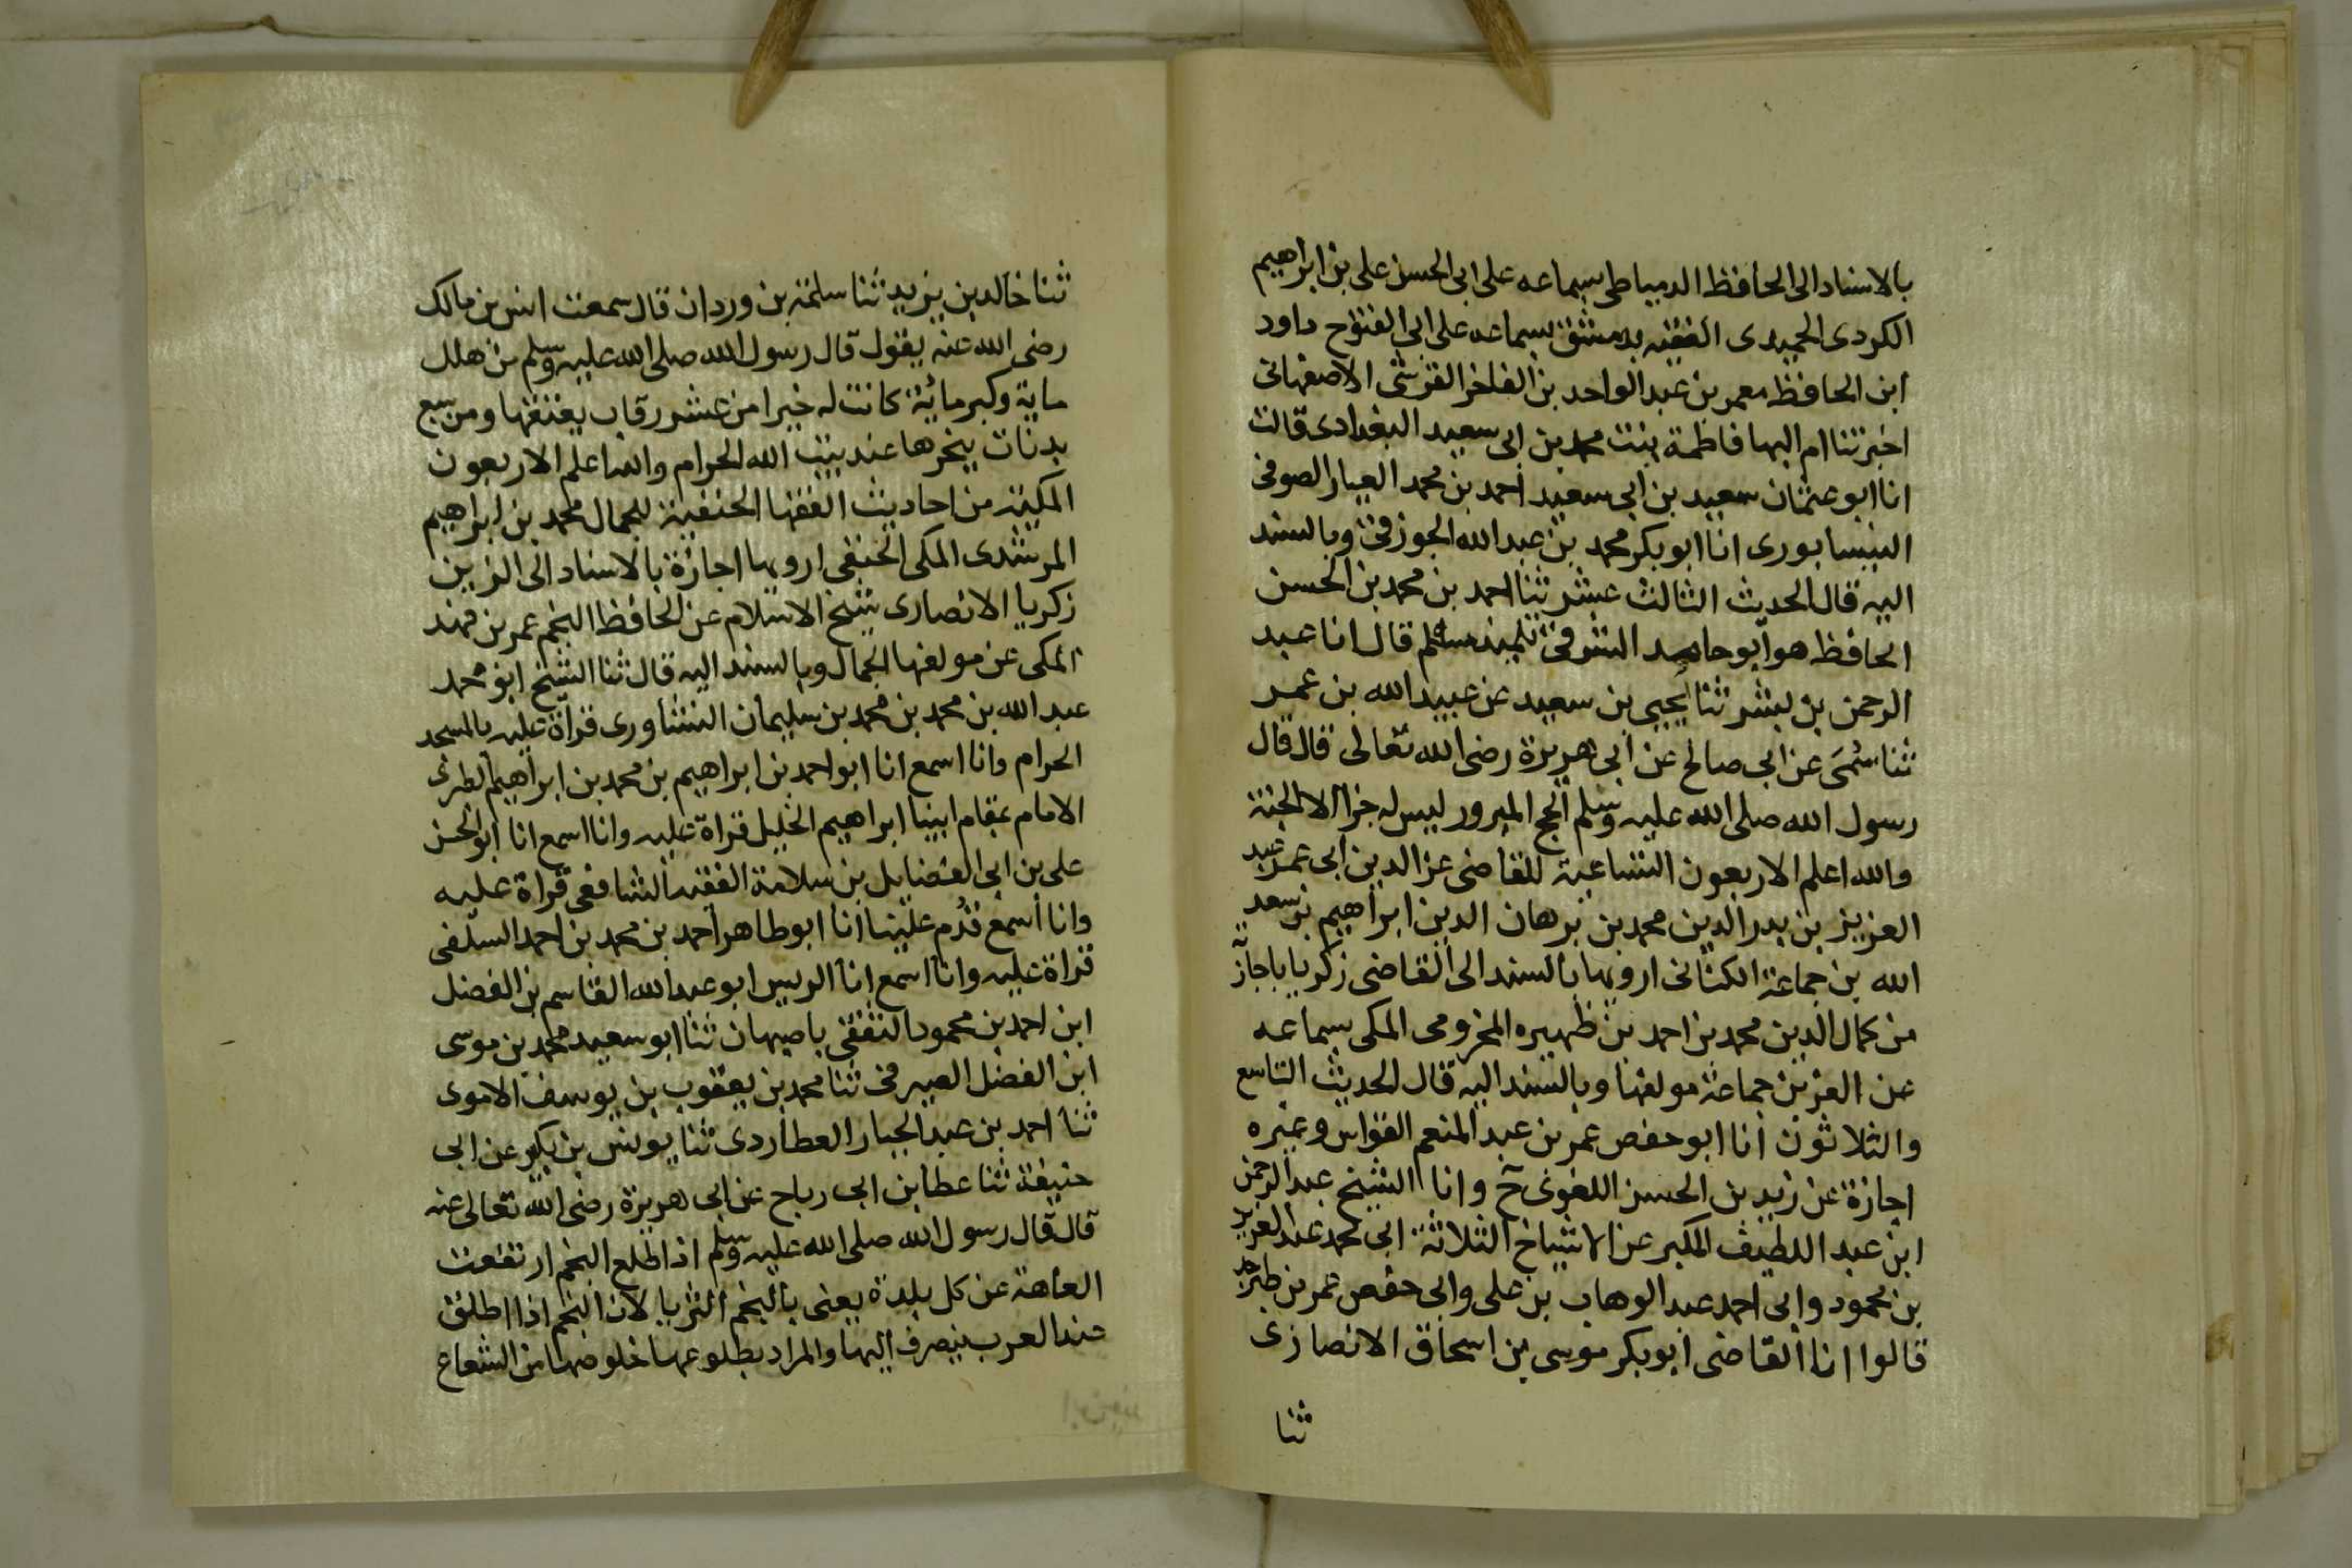 بالاسناد الى الحافظ الدمياطى بسماعه على ابى الحسن على بن ابراهيم
الكردى الحميدى الفقيه بدمشق بسماعه على ابى الفتوح داود
ابن الحافظ معمر بن عبد الواحد بن الفاخر القرشى الاصفهانى
اخبرتنا ام البها فاطمة بنت محمد بن ابى سعيد البغدادى قالت
انا ابو عثمان سعيد بن ابى سعيد احمد بن محمد العيار الصوفى
النيسابورى انا ابو بكر محمد بن عبد الله الجوزقى وبالسند
اليه قال الحديث الثالث عشر ثنا احمد بن محمد بن الحسن
الحافظ هو ابو حامد الشرقى تلميذ مسلم قال انا عبد
الرحمن بن بشر ثنا يحيى بن سعيد عن عبيد الله بن عمر
ثنا سُمَى عن ابى صالح عن ابى هريرة رضى الله تعالى قال قال
رسول الله صلى الله عليه وسلم الحج المبرور ليس له جزا الا الجنة
والله اعلم الاربعون التساعية للقاضى عز الدين ابى عمر عبد
العزيز بن بدر الدين محمد بن برهان الدين ابراهيم بن سعد
الله بن جماعة الكنانى ارويها بالسند الى القاضى زكريا باجازة
من كمال الدين محمد بن احمد بن ظهيره المخزومى المكى بسماعه
عن العز بن جماعة مولفها وبالسند اليه قال الحديث التاسع
والثلاثون انا ابو حفص عمر بن عبد المنعم القواس وغيره
اجازة عن زيد بن الحسن اللغوى ح وانا الشيخ عبد الرحمن
ابن عبد اللطيف المكبر عن الاشياخ الثلاثة ابى محمد عبد العزيز
بن محمود وابى احمد عبد الوهاب بن على وابى حفص عمر بن طبرزد
قالوا انا القاضى ابو بكر موسى بن اسحاق الانصارى
ثنا
ثنا خالد بن يزيد ثنا سلمة بن وردان قال سمعت انس بن مالك
رضى الله عنه يقول قال رسول الله صلى الله عليه وسلم من هلل
ماية وكبر مائة كانت له خيرا من عشر رقاب يعتقها ومن سبع
بدنات ينحرها عند بيت الله الحرام والله اعلم الاربعون
المكية من احاديث الفقها الحنفية للجمال محمد بن ابراهيم
المرشدى المكى الحنفى ارويها اجازة بالاسناد الى الزين
زكريا الانصارى شيخ الاسلام عن الحافظ النجم عمر بن فهد
المكى عن مولفها الجمال وبالسند اليه قال ثنا الشيخ ابو محمد
عبد الله بن محمد بن محمد بن سليمان النشاورى قراة عليه بالمسجد
الحرام وانا اسمع انا ابو احمد بن ابراهيم بن محمد بن ابراهيم الطبرى
الامام بمقام ابينا ابراهيم الخليل قراة عليه وانا اسمع انا ابو الحسن
على بن ابى الفضايل بن سلامة الفقيه الشافعى قراة عليه
وانا أسمع قدُم علينا انا ابو طاهر احمد بن محمد بن احمد السلفى
قراة عليه وانا اسمع انا الرييس ابو عبد الله القاسم بن الفضل
ابن احمد بن محمود الثقفى باصبهان ثنا ابو سعيد محمد بن موسى
ابن الفضل الصيرفى ثنا محمد بن يعقوب بن يوسف الاموى
ثنا احمد بن عبد الجبار العطاردى ثنا يونس بن بكير عن ابى
حنيفة ثنا عطا بن ابى رباح عن ابى هريرة رضى الله تعالى عنه
قال قال رسول الله صلى الله عليه وسلم اذا طلع النجم ارتفعت
العاهة عن كل بلدة يعنى بالنجم الثريا لان النجم اذا اطلق
عند العرب ينصرف اليها والمراد بطلوعها خلوصها من الشعاع